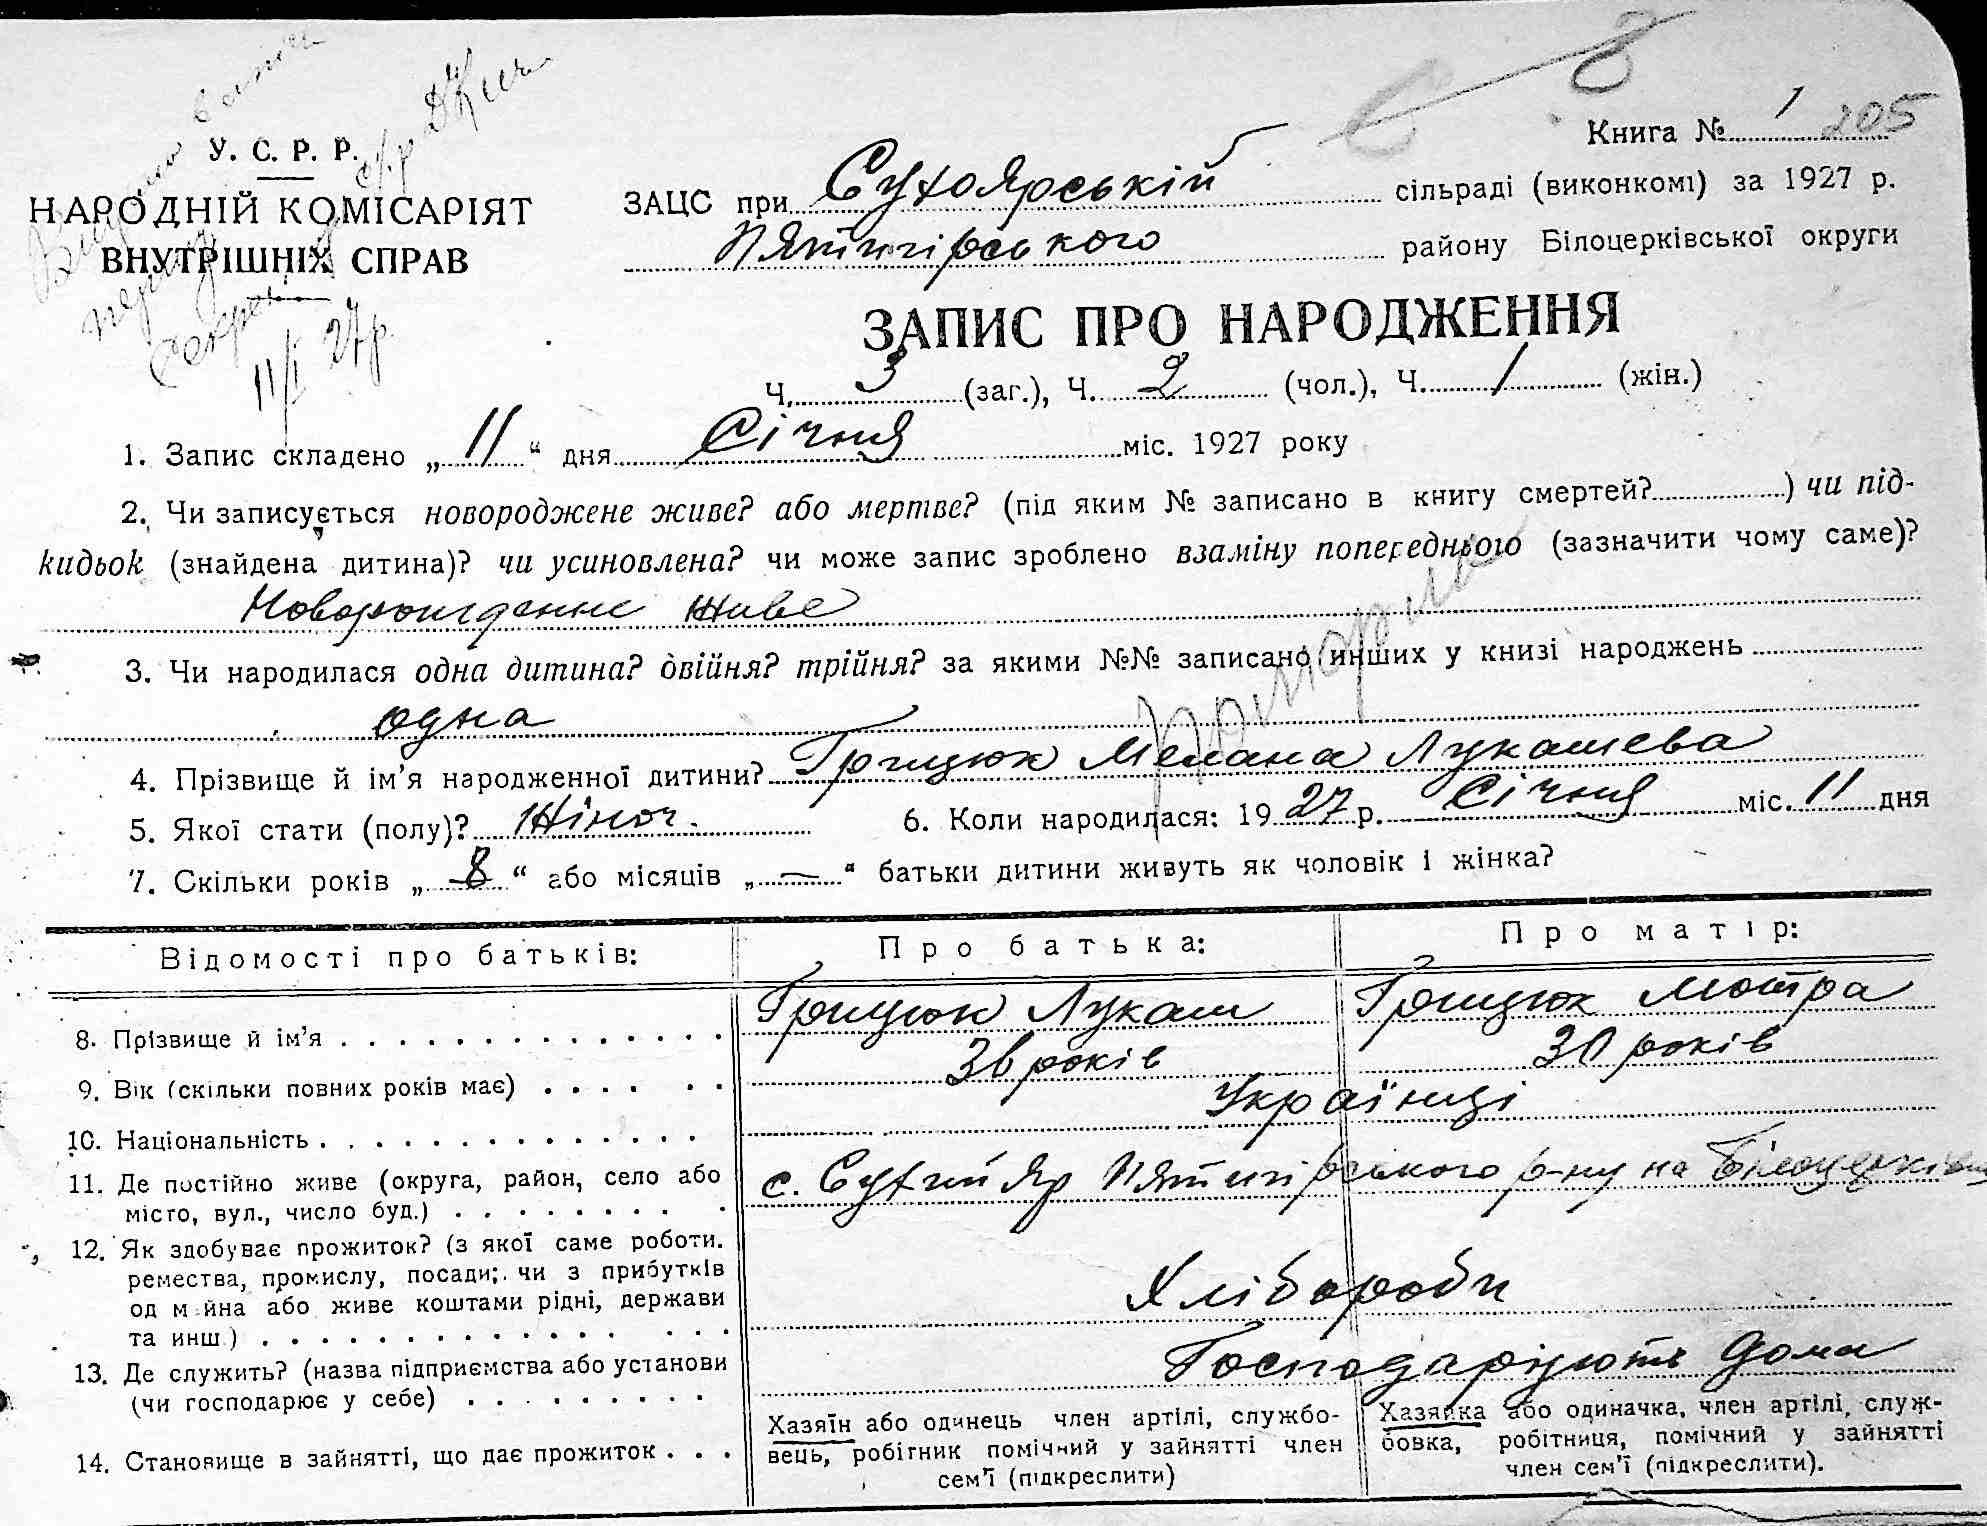 У. С. Р. Р.
НАРОДНІЙ КОМІСАРІЯТ
ВНУТРІШНІХ СПРАВ
11/I 27 р.
Книга № 1 205
ЗАЦС при Сухоярській сільраді (виконкомі) за 1927 р.
Пятигірського району Білоцерківської округи
ЗАПИС ПРО НАРОДЖЕННЯ
Ч. 3 (заг.), Ч. 2 (чол.), Ч. 1 (жін.)
1. Запис складено „ 11 “ дня Січня міс. 1927 року
2. Чи записується новороджене живе? або мертве? (під яким № записано в книгу смертей? ) чи під-
кидьок (знайдена дитина)? чи усиновлена? чи може запис зроблено взаміну попереднього (зазначити чому саме)?
живе
3. Чи народилася одна дитина? двійня? трійня? за якими №№ записано инших у книзі народжень
одна
4. Прізвище й ім’я народженної дитини? Грицюк Мелана Лукашева
5. Якої стати (полу)? Жіноч. 6. Коли народилася: 19 27 р. Січня міс. 11 дня
7. Скільки років „ 8 “ або місяців „ — “ батьки дитини живуть як чоловік і жінка?
Відомості про батьків: Про батька: Про матір:
8. Прізвище й ім’я Грицюк Лукаш Грицюк Мотра
9. Вік (скільки повних років має) 36 років 30 років
10. Національність Українці
11. Де постійно живе (округа, район, село або
місто, вул., число буд.) с. Сухий Яр Пятигірського р-ну на
12. Як здобуває прожиток? (з якої саме роботи,
ремества, промислу, посади; чи з прибутків
од майна або живе коштами рідні, держави
та инш.) Хлібороби
13. Де служить? (назва підприємства або установи
(чи господарює у себе) Господарюють дома
14. Становище в зайнятті, що дає прожиток
Хазяїн або одинець член артілі, службо-
вець, робігник помічний у зайнятті член
сем’ї (підкреслити)
Хазяйка або одиначка, член артілі, служ-
бовка, робітниця, помічний у зайнятті
член сем’ї (підкреслити).